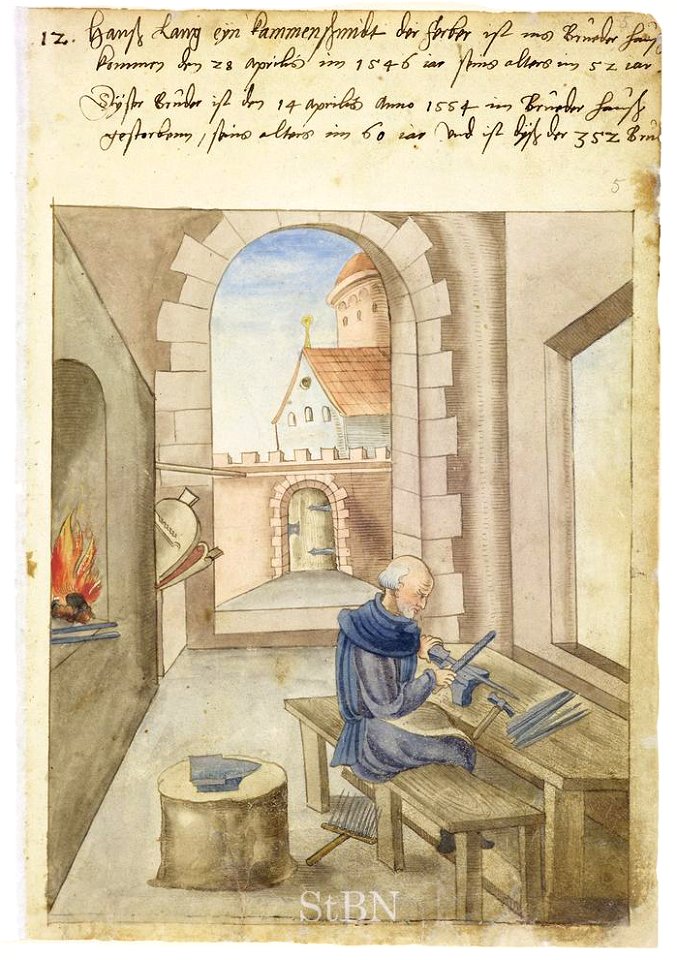 12. Hanß Lang eyn kammenschmidt der ferber ist ins Brueder hauß
kommen den 28 aprilis im 1546 iar seins alters im 52 iar
Dyser Bruder ist den 14 aprilis Anno 1554 im Brueder hauß
gestorbenn, seins alters im 60 iar Und ist dyß der 352 Bru
5
StBN